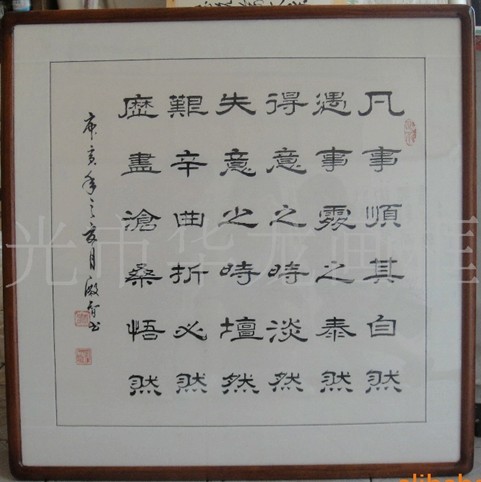 凡事順其自然
遇事處之泰然
得意之時淡然
失意之時壇然
艱辛曲折必然
歷盡滄桑悟然
庚寅年之
光市华龙画框